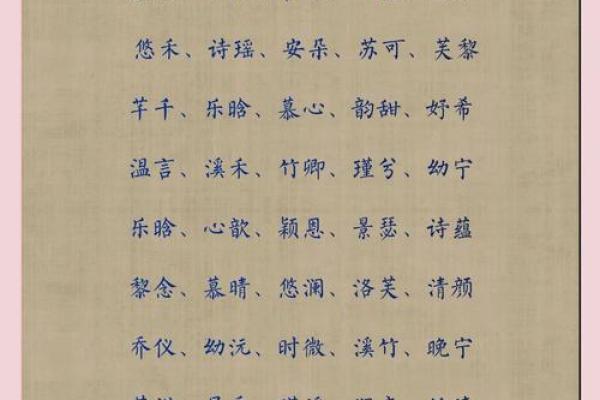 悠禾、诗瑶、安朵、苏可、芙黎
芊千、乐晗、慕心、韵甜、妤希
温言、溪禾、竹卿、瑾兮、幼宁
乐晗、心歆、颖恩、景瑟、诗蕴
黎念、慕晴、悠澜、洛芙、清颜
乔仪、幼沅、时微、溪竹、晚宁